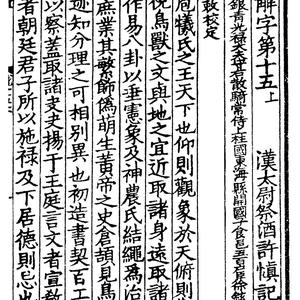 解字第十五上
漢太尉祭酒許慎記
銀青光祿大夫守右散騎常侍上柱國東海縣開國子食邑五百户臣徐鉉
敕校定
庖犧氏之王天下也仰則觀象於天俯則
視鳥獸之文與地之宜近取諸身遠取諸
作易八卦以垂憲象及神農氏結繩爲治
庶業其繁飾僞萌生黃帝之史倉頡見鳥
迹知分理之可相別異也初造書契百工
以察蓋取諸夬夬揚于王庭言文者宣教
者朝廷君子所以施祿及下居德則忌也